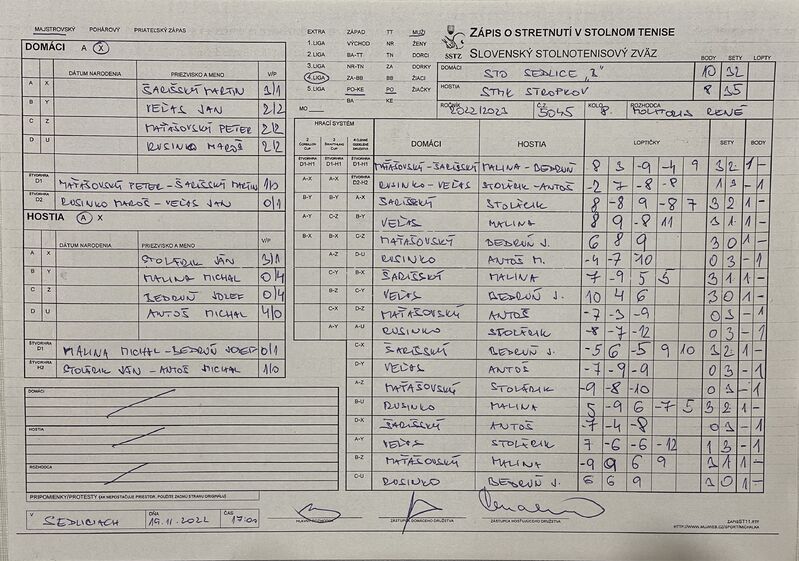 MAJSTROVSKÝ POHÁROVÝ PRIATEĽSKÝ ZÁPAS
DOMÁCI A X
DÁTUM NARODENIA PRIEZVISKO A MENO V/P
A X ŠARIŠSKÝ MARTIN 3/1
B Y VEĽAS JÁN 2/2
C Z MAŤAŠOVSKÝ PETER 2/2
D U RUSINKO MAROŠ 2/2
ŠTVORHRA D1 MAŤAŠOVSKÝ PETER - ŠARIŠSKÝ MARTIN 1/0
ŠTVORHRA D2 RUSINKO MAROŠ - VEĽAS JÁN 0/1
HOSTIA A X
DÁTUM NARODENIA PRIEZVISKO A MENO V/P
A X STOLÁRIK JÁN 3/1
B Y MALINA MICHAL 0/4
C Z BEDRUŇ JOZEF 0/4
D U ANTOŠ MICHAL 4/0
ŠTVORHRA D1 MALINA MICHAL - BEDRUŇ JOZEF 0/1
ŠTVORHRA H2 STOLÁRIK JÁN - ANTOŠ MICHAL 1/0
DOMÁCI
HOSTIA
ROZHODCA
PRIPOMIENKY/PROTESTY (AK NEPOSTAČUJE PRIESTOR, POUŽITE ZADNÚ STRANU ORIGINÁLU)
V SEDLICIACH DŇA 19.11.2022 ČAS 17:00
EXTRA ZÁPAD TT MUŽI
1.LIGA VÝCHOD NR ŽENY
2.LIGA BA-TT TN DORCI
3.LIGA NR-TN ZA DORKY
4.LIGA ZA-BB BB ŽIACI
5.LIGA PO-KE PO ŽIAČKY
MO BA KE
SSTZ
ZÁPIS O STRETNUTÍ V STOLNOM TENISE
SLOVENSKÝ STOLNOTENISOVÝ ZVÄZ
BODY SETY LOPTY
DOMÁCI STO SEDLICE "B" 10 32
HOSTIA STMK STROPKOV 8 35
ROČNÍK 2022/2023 Č.Z. 5045 KOLO 8. ROZHODCA RENÉ
HRACÍ SYSTÉM
DOMÁCI HOSTIA LOPTIČKY SETY BODY
D1-H1 D1-H1 D1-H1 MAŤAŠOVSKÝ-ŠARIŠSKÝ MALINA-BEDRUŇ 8 3 -9 -4 9 3 2 1 -
A-X A-X D2-H2 RUSINKO-VEĽAS STOLÁRIK-ANTOŠ -2 7 -8 -8 1 3 - 1
B-Y B-Y A-X ŠARIŠSKÝ STOLÁRIK 8 -8 9 -8 7 3 2 1 -
A-Y C-Z B-Y VEĽAS MALINA 8 9 -8 11 3 1 1 -
B-X B-X C-Z MAŤAŠOVSKÝ BEDRUŇ J. 6 8 9 3 0 1 -
A-Z D-U RUSINKO ANTOŠ M. -4 -7 -10 0 3 - 1
C-Y B-X ŠARIŠSKÝ MALINA 7 -9 5 5 3 1 1 -
B-Z C-Y VEĽAS BEDRUŇ J. 10 4 6 3 0 1 -
C-X D-Z MAŤAŠOVSKÝ ANTOŠ -7 -3 -9 0 3 - 1
A-Y A-U RUSINKO STOLÁRIK -8 -7 -12 0 3 - 1
C-X ŠARIŠSKÝ BEDRUŇ J. -5 6 -5 9 10 3 2 1 -
D-Y VEĽAS ANTOŠ -7 -9 -9 0 3 - 1
A-Z MAŤAŠOVSKÝ STOLÁRIK -9 -8 -10 0 3 - 1
B-U RUSINKO MALINA 5 -9 6 -7 5 3 2 1 -
D-X ŠARIŠSKÝ ANTOŠ -7 -4 -8 0 3 - 1
A-Y VEĽAS STOLÁRIK 7 -6 -6 -12 1 3 - 1
B-Z MAŤAŠOVSKÝ MALINA -9 9 6 9 3 1 1 -
C-U RUSINKO BEDRUŇ J. 6 6 9 3 0 1 -
HLAVNÝ ROZHODCA ZÁSTUPCA DOMÁCEHO DRUŽSTVA ZÁSTUPCA HOSŤUJÚCEHO DRUŽSTVA